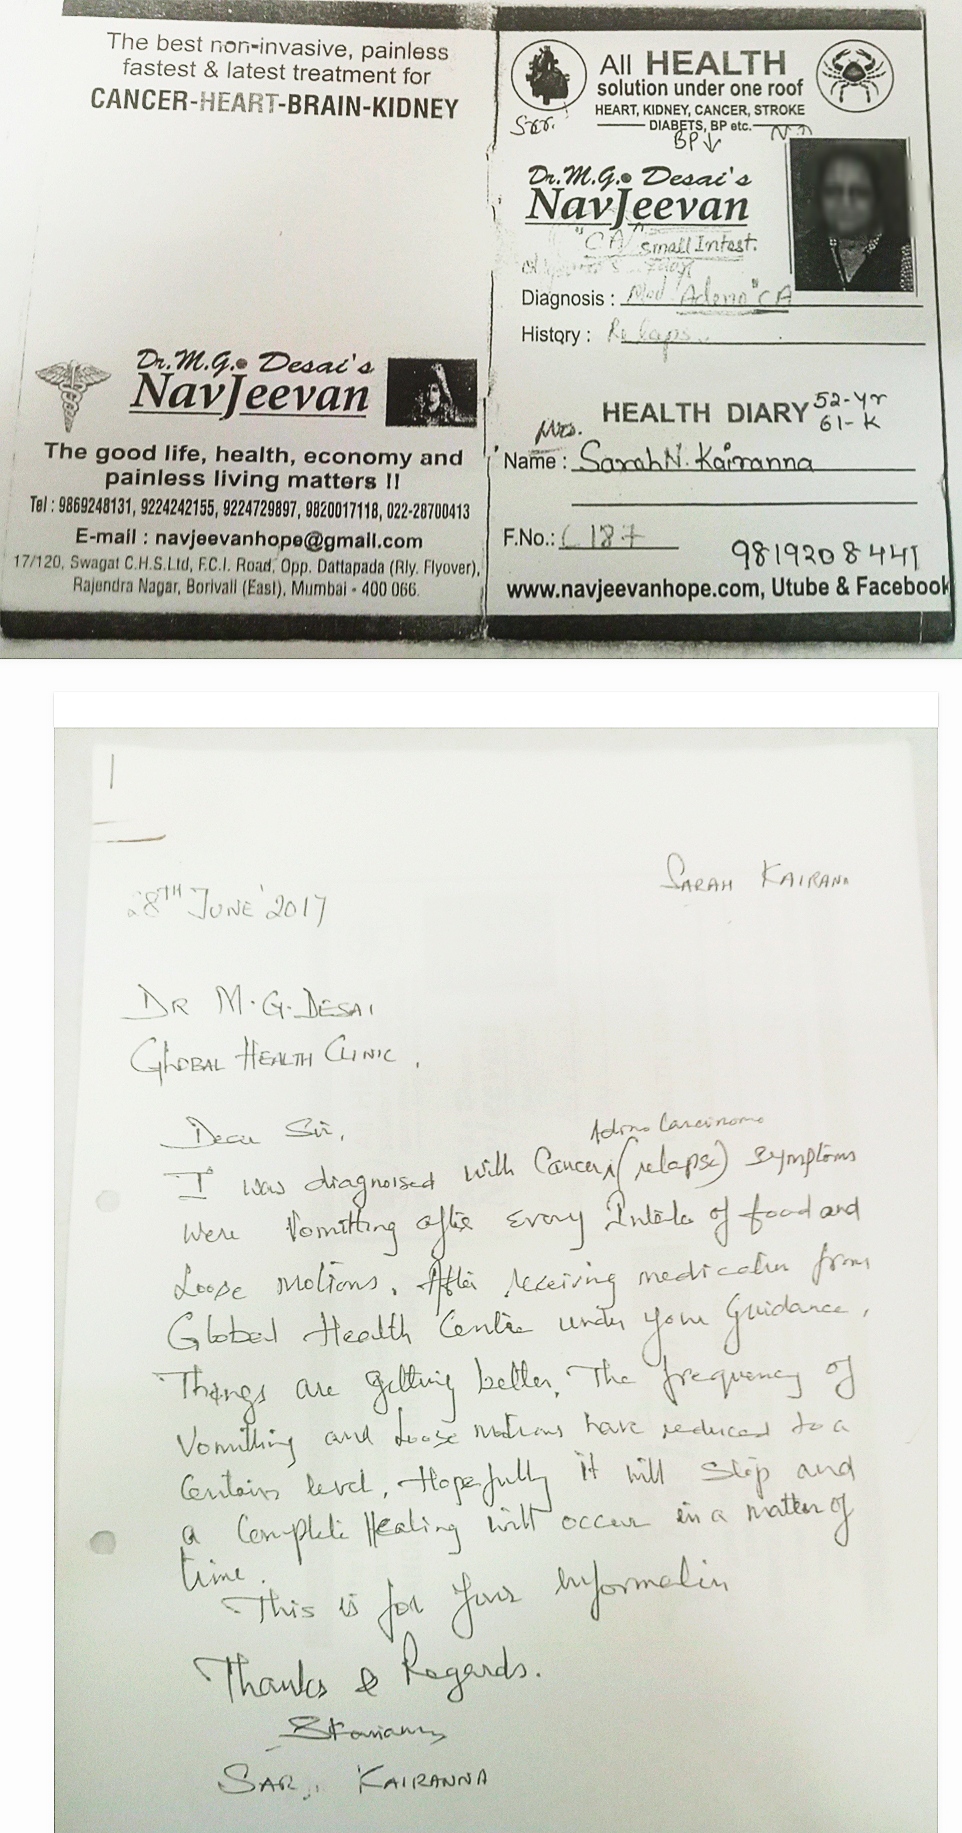 The best non-invasive, painless
fastest & latest treatment for
CANCER-HEART-BRAIN-KIDNEY
Dr.M.G. Desai's
NavJeevan
The good life, health, economy and
painless living matters !!
Tel : 9869248131, 9224242155, 9224729897, 9820017118, 022-28700413
E-mail : navjeevanhope@gmail.com
17/120, Swagat C.H.S.Ltd, F.C.I. Road, Opp. Dattapada (Rly. Flyover),
Rajendra Nagar, Borivali (East), Mumbai - 400 066.
All HEALTH
solution under one roof
HEART, KIDNEY, CANCER, STROKE
DIABETS, BP etc.
BP↓
Dr.M.G. Desai's
NavJeevan
"CA" small Intest.
Diagnosis : Mod Adeno "CA
History : Relaps..
HEALTH DIARY 52-yr
61-K
Mrs.
Name : Sarah N. Kairanna
F.No.: C 187
9819208441
www.navjeevanhope.com, Utube & Facebook
SARAH KAIRANN
28TH JUNE'2017
DR M.G.DESAI
GLOBAL HEALTH CLINIC.
Dear Sir,
Adino Carcinoma
I was diagnoised with Cancer (relapse) Symptoms
were Vomitting after Every Intake of food and
Loose motions. After receiving medication from
Global Health Centre under your Guidance,
Things are getting better. The frequency of
Vomitting and Loose motions have reduced to a
Certain level. Hopefully it will stop and
a Complete Healing will occur in a matter of
time.
This is for your information
Thanks & Regards.
SAR KAIRANNA